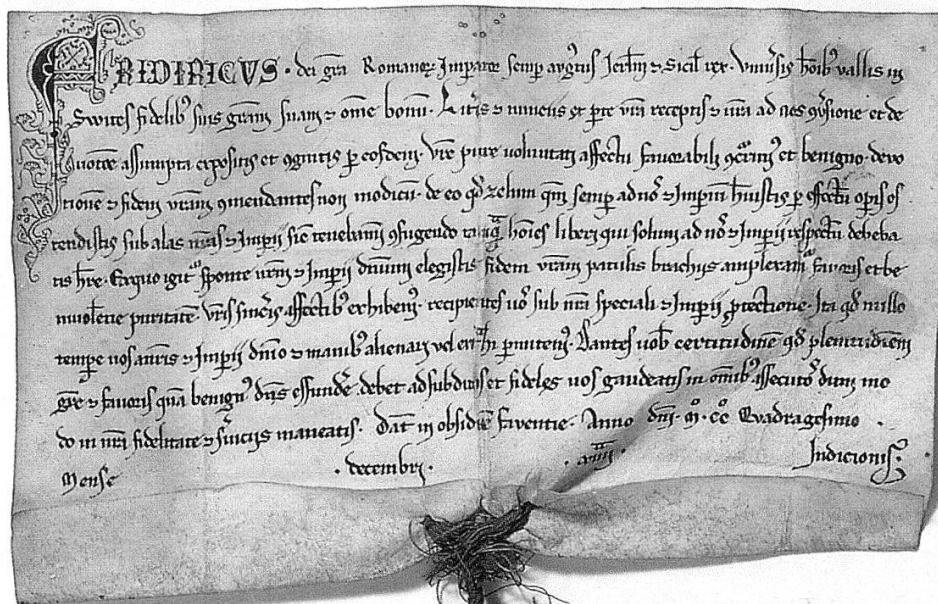 FRIDIRICVS · dei gra Romanor Imperator semp augustus Jerlm et Sicil rex. Vniuersis hoibus vallis in
Swites fidelibus suis gram suam et omne bonum. Litteris et nunciis ex parte vra receptis et vra ad nos conuersione et de
uotione assumpta expositis et cognitis per eosdem. Vre pure voluntati affectu fauorabili concurrimus et benigno. deuo
tionem et fidem vram comendantes non modicum. de eo qd zelum quem semp ad nos et Imperium habuistis per effectum operis os
tendistis sub alas nras et Imperii sicut tenebamini confugiendo tanquam hoies liberi qui solum ad nos et Imperii respectum debeba
tis here. Ex quo igitur sponte nrm et Imperii dominium elegistis fidem vram patulis brachiis amplexamur fauoris et be
niuolentie puritatem vris sinceris affectibus exhibemus. recipientes uos sub nra speciali et Imperii protectione. Ita qd nullo
tempore uos a nris et Imperii dominio et manibus alienari vel extrahi permittemus. Dantes uobis certitudinem qd plenitudinem
gratie et fauoris quam benignus dns effundere debet ad subditos et fideles uos gaudeatis in omnibus assecutos dum mo
do in nra fidelitate et seruiciis maneatis. Dat in obsidione Fauentie. Anno dni. mo. cco Quadragesimo.
Mense · decembri · xiiii · Indicionis.